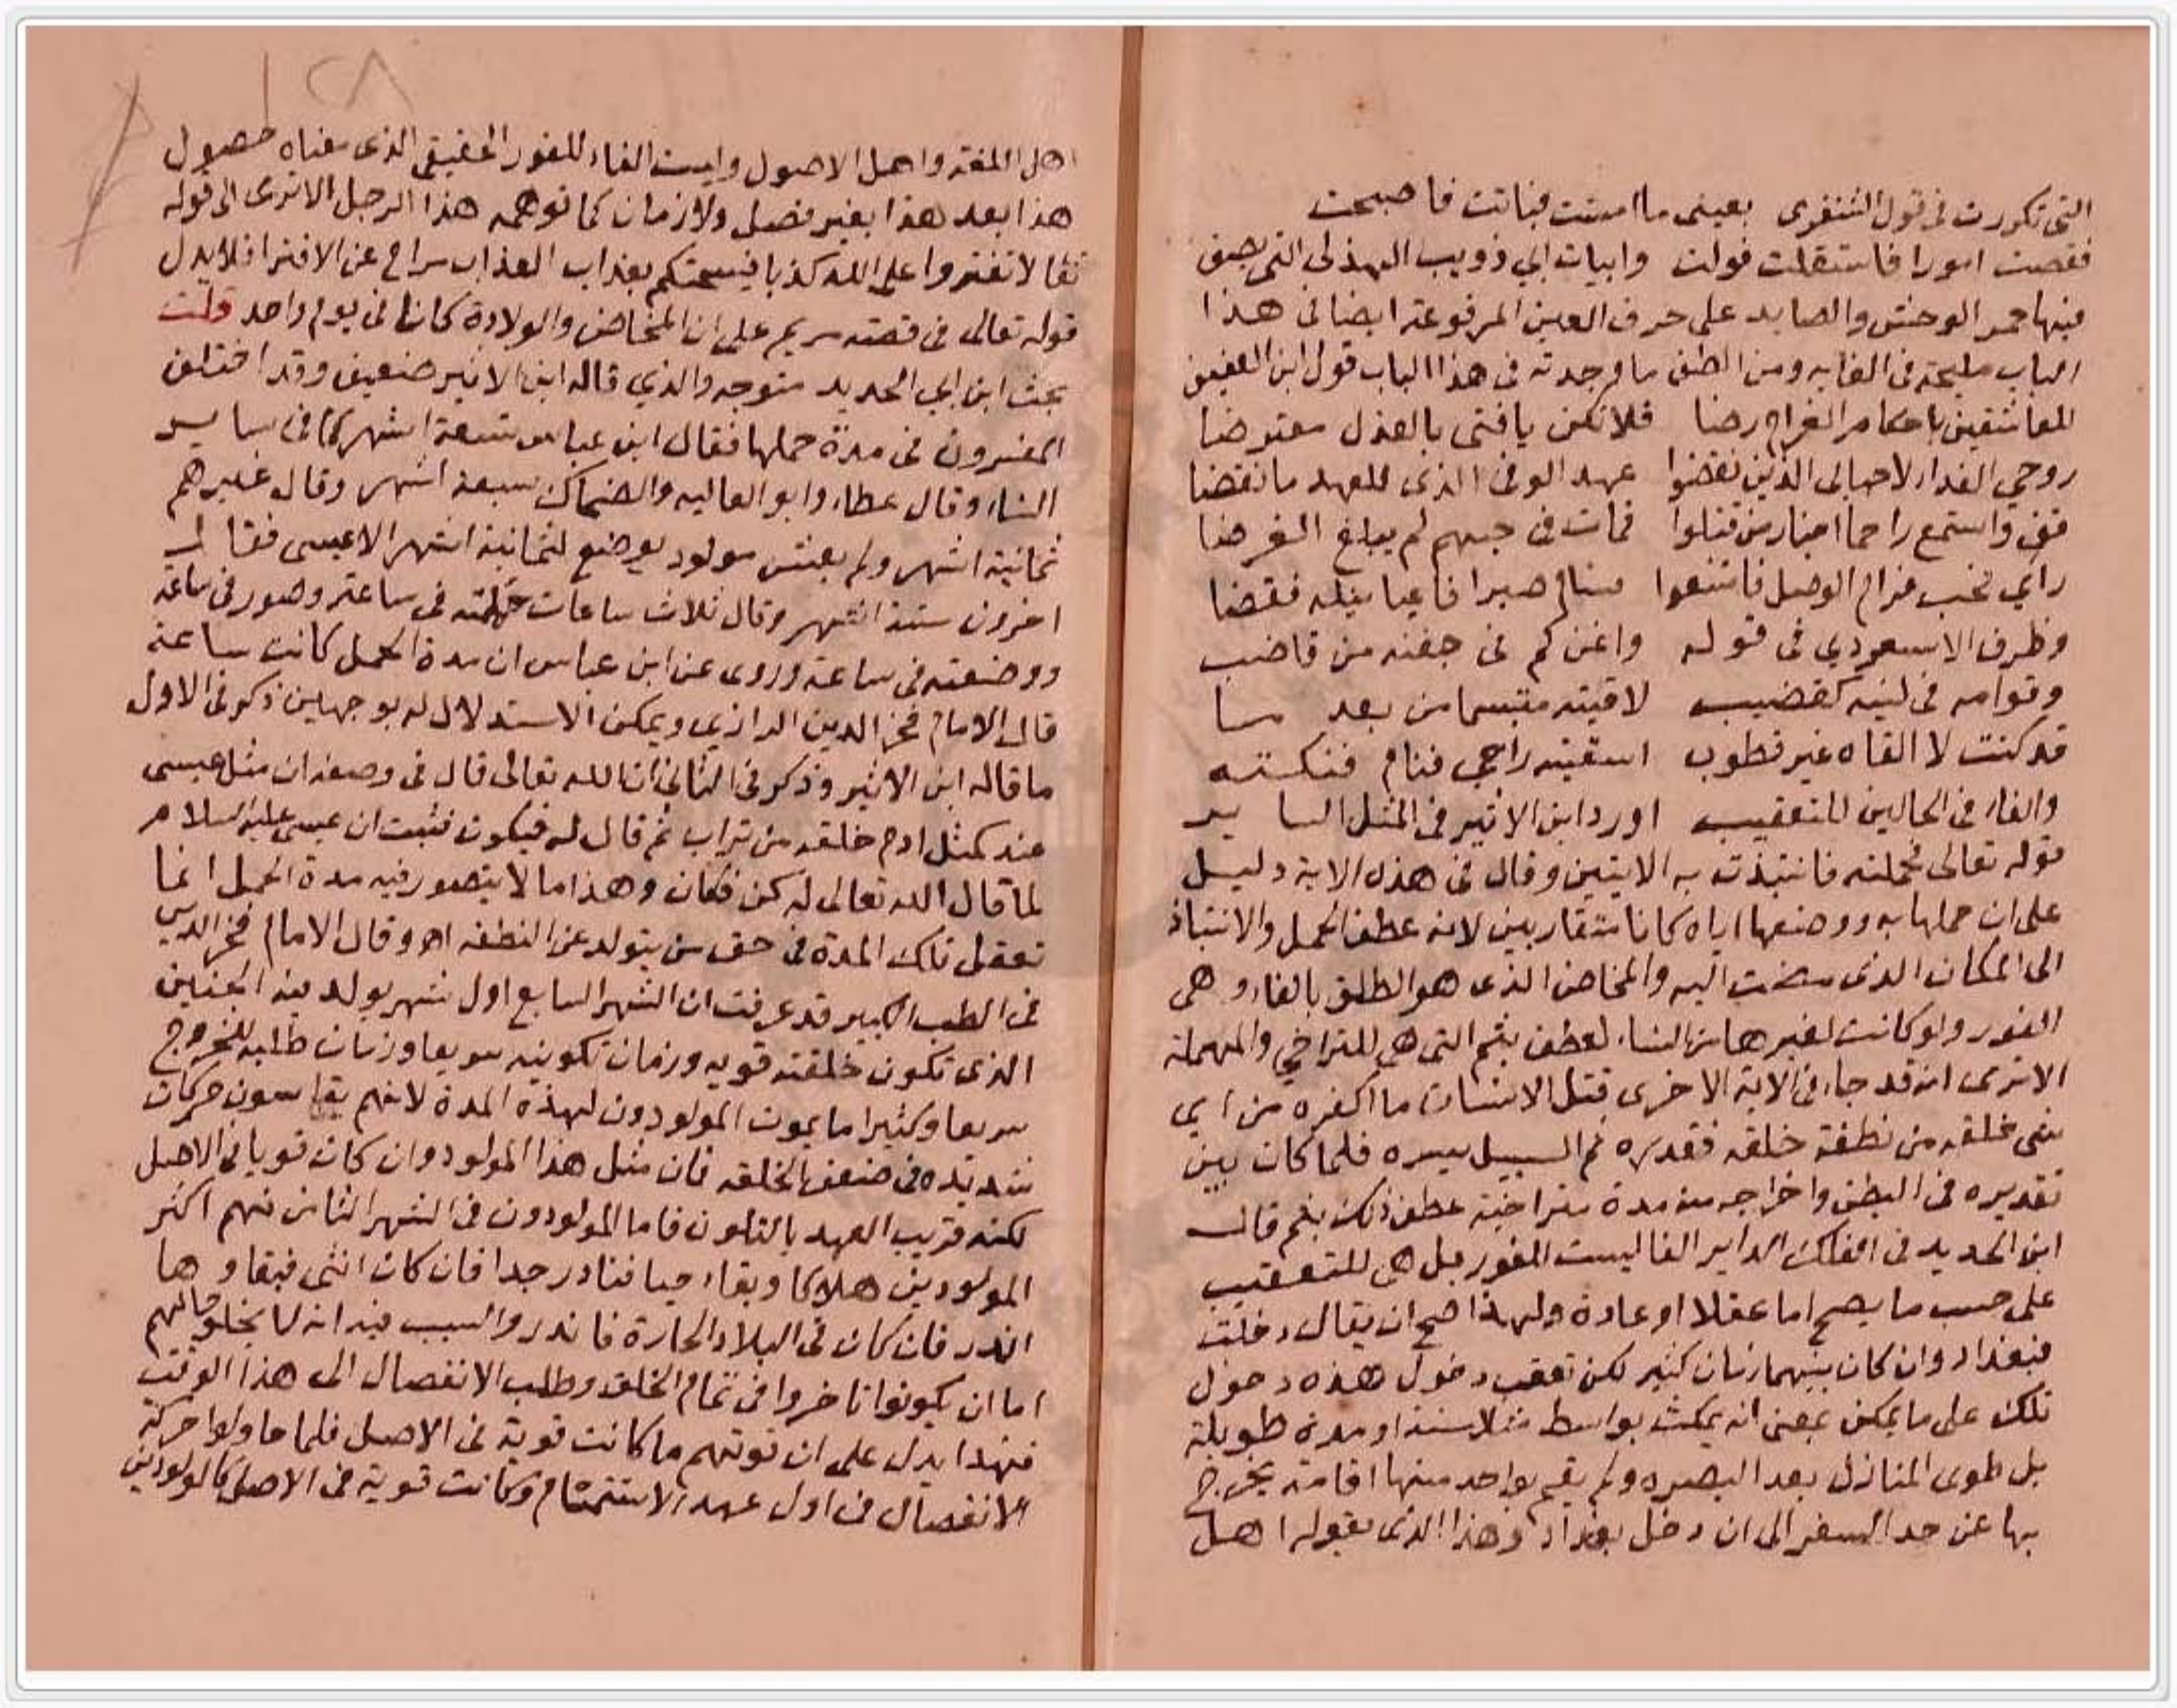 التى تكررت فى قول الشنفرى بعينى ما امست فباتت فاصبحت
فقضت امورا فاستقلت فولت وابيات ابي ذويب الهذلى التى يصف
فيها حمر الوحش والصايد على حرف العين المرفوعة ايضا فى هذا
الباب مليحة فى الغايه ومن الطف ما وجدته فى هذا الباب قول ابن العفيف
للعاشقين باحكام الغرام رضا فلا تكن يا فتى بالعذل معترضا
روحي الفدا لاحبابى الذين نقضوا عهد الوفى الذى للعهد ما نقضا
قف واستمع راحما اخبار من قتلوا فمات فى حبهم لم يبلغ الغرضا
راي فحب فرام الوصل فامتنعوا فسام صبرا فاعيا نيله فقضا
وظرف الاسعردي فى قوله واغن كم فى جفنه من قاضب
وقوامه فى لينه كقضيب لاقيته متبسما من بعد ما
قد كنت لا القاه غير قطوب اسقيته راحي فنام فنكته
والفاء فى الحالين للتعقيب اورد ابن الاثير فى المثل الساير
قوله تعالى فحملته فانتبذت به الايتين وقال فى هذه الاية دليل
على ان حملها به ووضعها اياه كانا متقاربين لانه عطف الحمل والانتباذ
الى المكان الذى مضت اليه والمخاض الذى هو الطلق بالفاء وهى
الفور ولو كانت لغيرها من النساء لعطف بثم التى هى للتراخي والمهملة
الا ترى انه قد جاء فى الاية الاخرى قتل الانسان ما اكفره من اي
شى خلقه من نطفة خلقه فقدره ثم السبيل يسره فلما كان بين
تقديره فى البطن واخراجه منه مدة متراخية عطف ذلك بثم قال
ابن الحديد فى الفلك الداير الفا ليست للفور بل هى للتعقيب
على حسب ما يصح اما عقلا او عادة ولهذا صح ان يقال دخلت
فبغداد وان كان بينهما زمان كثير لكن تعقب دخول هذه دخول
تلك على ما يمكن بمعنى انه يمكث بواسط مثلا سنة او مدة طويلة
بل طوى المنازل بعد البصره ولم يقم بواحد منها اقامة يخرج
بها عن حد السفر الى ان دخل بغداد وهذا الذى يقوله اهل
١٢٨
اهل اللغة واهل الاصول وليست الفاء للفور الحقيقى الذى معناه حصول
هذا بعد هذا بغير فصل ولا زمان كما توهمه هذا الرجل الا ترى الى قوله
تعا لا تفتروا على الله كذبا فيسحتكم بعذاب العذاب متراخ عن الافترا فلا يدل
قوله تعالى فى قصة مريم على ان المخاض والولادة كانا فى يوم واحد قلت
بحث ابن ابي الحديد متوجه والذي قاله ابن الاثير ضعيف وقد اختلف
المفسرون فى مدة حملها فقال ابن عباس تسعة اشهر كما فى ساير
النساء وقال عطاء وابو العاليه والضحاك سبعة اشهر وقال غيرهم
ثمانية اشهر ولم يعش مولود يوضع لثمانية اشهر الا عيسى فقال
اخرون ستة اشهر وقال ثلاث ساعات حملته فى ساعة وصور فى ساعة
ووضعته فى ساعة وروى عن ابن عباس ان مدة الحمل كانت ساعة
قال الامام فخر الدين الرازي ويمكن الاستدلال له بوجهين ذكر فى الاول
ما قاله ابن الاثير وذكر فى الثانى ان الله تعالى قال فى وصفه ان مثل عيسى
عند كمثل ادم خلقه من تراب ثم قال له فيكون فثبت ان عيسى عليه السلام
لما قال الله تعالى له كن فكان وهذا ما لا يتصور فيه مدة الحمل انما
تعقل تلك المدة فى حق من يتولد عن النطفه اه وقال الامام فخر الدين
فى الطب الكبير قد عرفت ان الشهر السابع اول شهر يولد فيه الجنين
الذى تكون خلقته قويه وزمان تكوينه سريعا وزمان طلبه للخروج
سريعا وكثيرا ما يموت المولودون لهذه المدة لانهم يقاسون حركات
شديده فى ضعف الخلقه فان مثل هذا المولود وان كان قويا فى الاصل
لكنه قريب العهد بالتلون فاما المولودون فى الشهر الثامن فهم اكثر
المولودين هلاكا وبقاء حيا فنادر جدا فان كان انثى فبقاوها
اندر فان كان فى البلاد الحارة فاندر والسبب فيه انه لا يخلو حالهم
اما ان يكونوا تاخروا فى تمام الخلق وطلب الانفصال الى هذا الوقت
فهذا يدل على ان قوتهم ما كانت قوية فى الاصل فلما حاولوا حركة
الانفصال فى اول عهد الاستتمام وكانت قوية فى الاصل كالمولودين